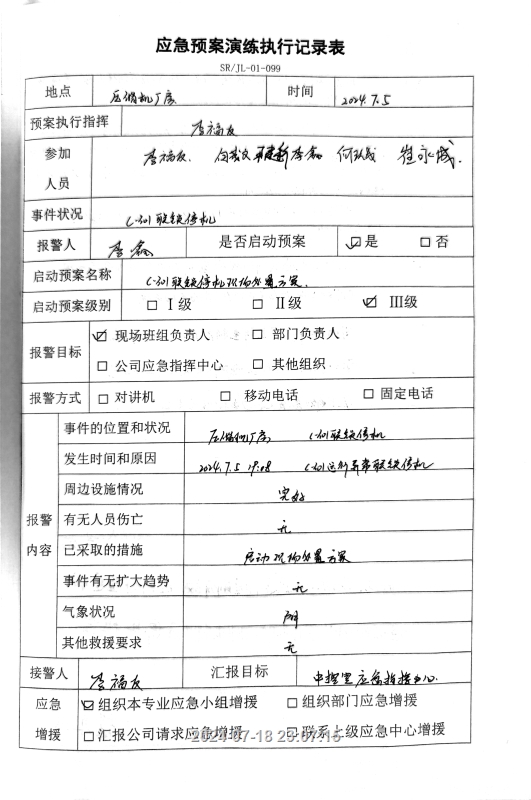 应急预案演练执行记录表
SR/JL-01-099
地点 压缩机厂房 时间 2024.7.5
预案执行指挥 李福友
参加 李福友. 李鑫
人员
事件状况 C-301联锁停机
报警人 李鑫 是否启动预案 ☑是 □否
启动预案名称 C-301联锁停机现场处置方案.
启动预案级别 □ Ⅰ级 □ Ⅱ级 ☑ Ⅲ级
报警目标 ☑ 现场班组负责人 □ 部门负责人
□ 公司应急指挥中心 □ 其他组织
报警方式 □ 对讲机 □ 移动电话 □ 固定电话
报警内容
事件的位置和状况 压缩机厂房 C-301联锁停机
发生时间和原因 2024.7.5 C-301运行异常联锁停机
周边设施情况 完好
有无人员伤亡 无
已采取的措施 启动现场处置方案
事件有无扩大趋势 无
气象状况 阴
其他救援要求 无
接警人 李福友 汇报目标 中控室应急指挥中心.
应急 ☑组织本专业应急小组增援 □组织部门应急增援
增援 □汇报公司请求应急增援 □联系上级应急中心增援
2024-07-18 23:07:15